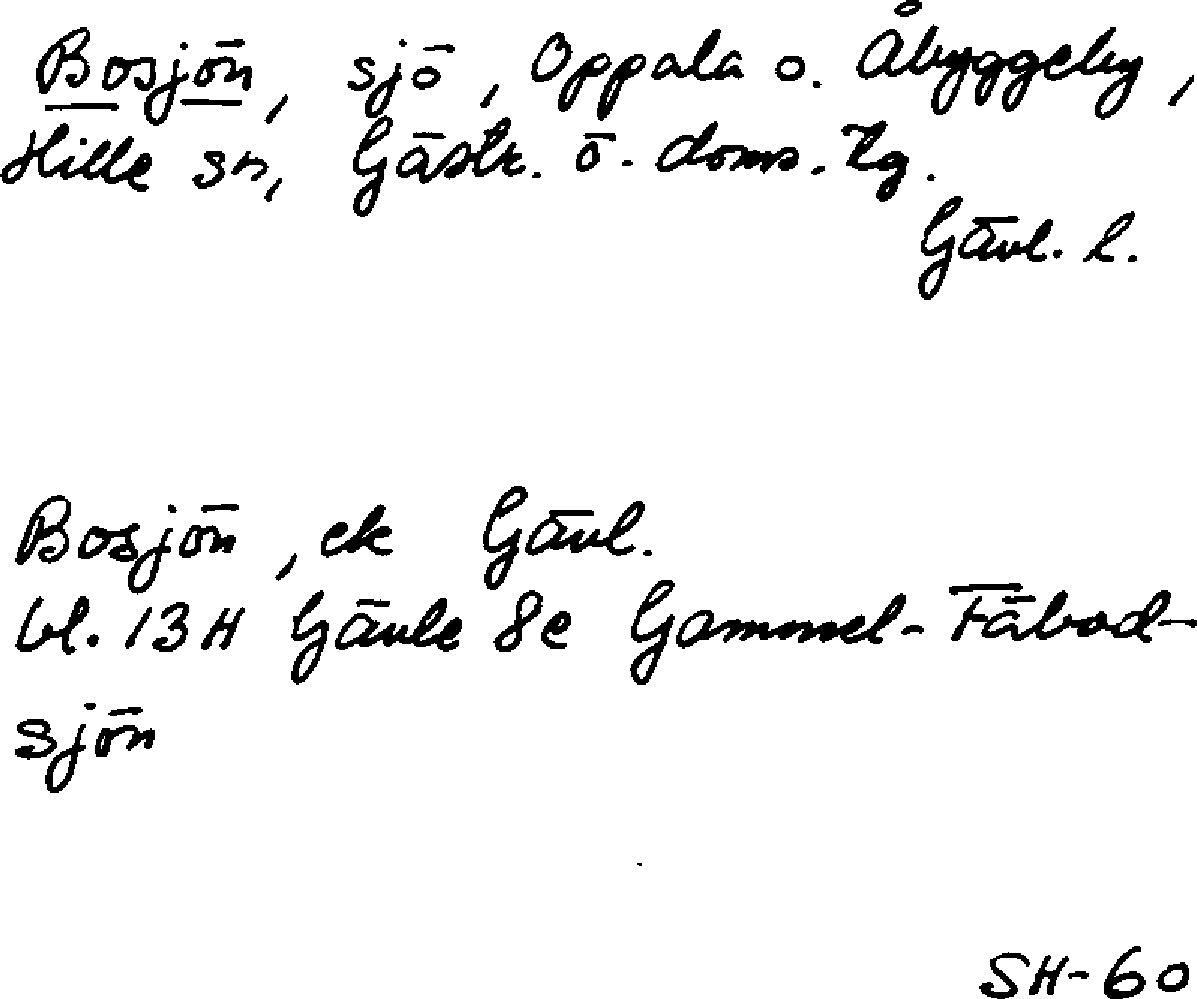 Bosjön, sjö, Oppala o. Åbyggeby,
Hille sn, Gästr. ö. doms. tg.
Gävl. l.
Bosjön, ek Gävl.
bl. 13H Gävle 8e Gammel-Fäbod-
sjön
SH-60